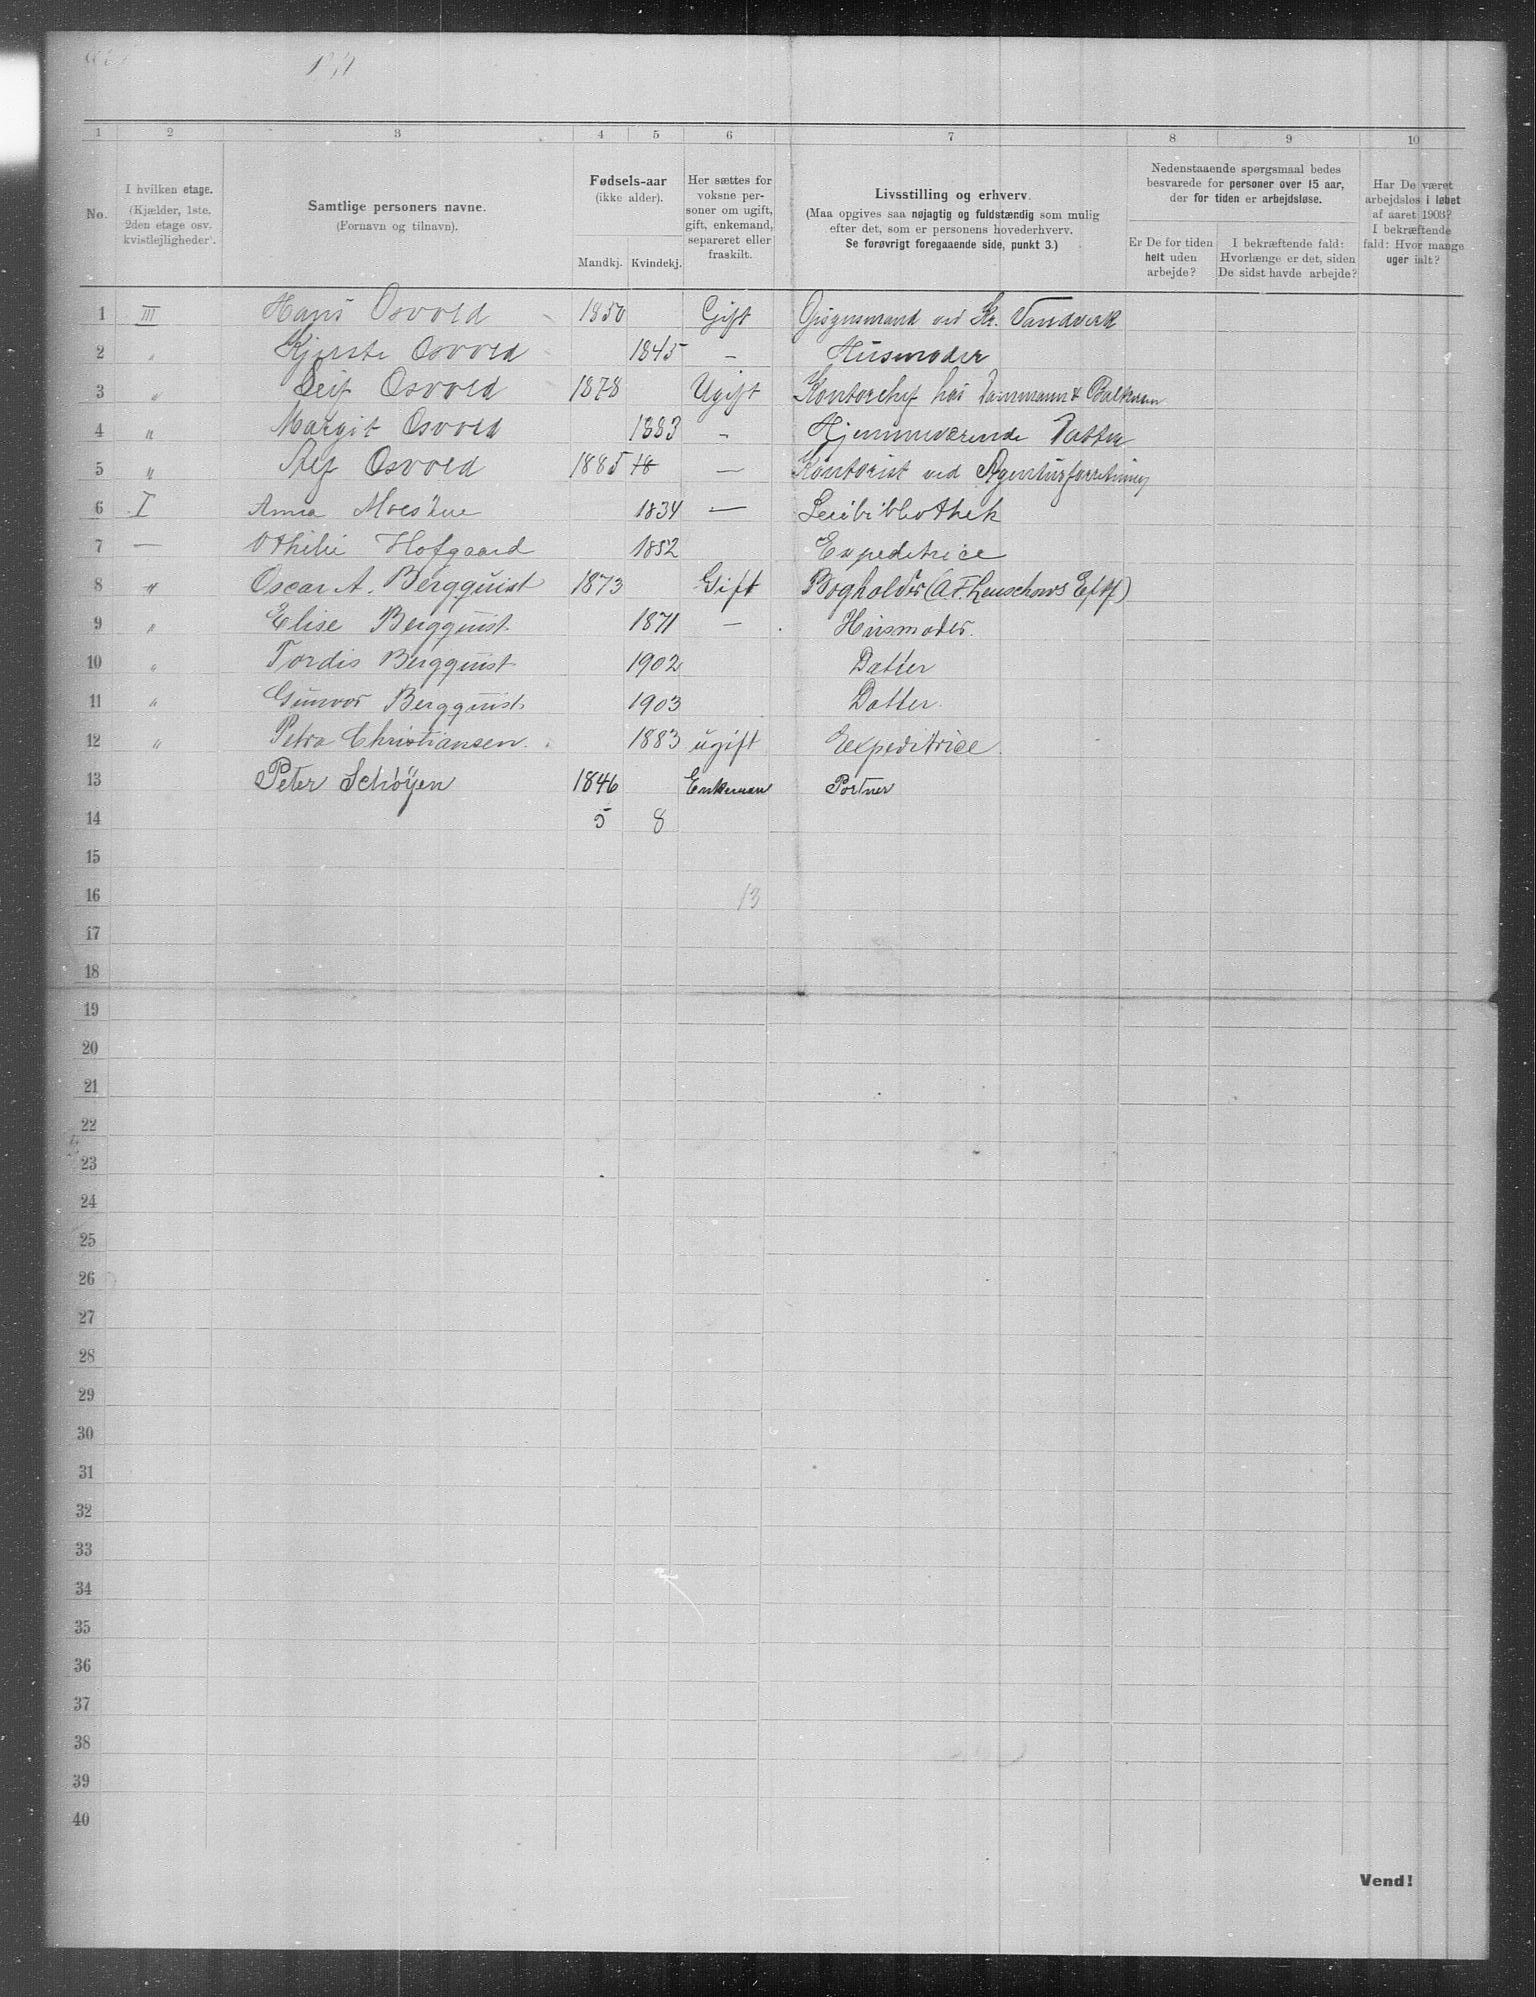 1 2 3 4 5 6 7 8 9 10
No.
I hvilken etage.
(Kjælder, 1ste, 2den etage osv. kvistlejligheder).
Samtlige personers navne.
(Fornavn og tilnavn).
Fødsels-aar
(ikke alder).
Mandkj. Kvindekj.
Her sættes for voksne personer om ugift, gift, enkemand, separeret eller fraskilt.
Livsstilling og erhverv.
(Maa opgives saa nøjagtig og fuldstændig som mulig efter det, som er personens hovederhverv.
Se forøvrigt foregaaende side, punkt 3.)
Nedenstaaende spørgsmaal bedes besvarede for personer over 15 aar, der for tiden er arbejdsløse.
Er De for tiden helt uden arbejde?
I bekræftende fald: Hvorlænge er det, siden De sidst havde arbejde?
Har De været arbejdsløs i løbet af aaret 1903? I bekræftende fald: Hvor mange uger ialt?
1 III Hans Osvold 1850 Gift Opsynsmand ved Kr. Vandverk
2 " Kjerste Osvold 1845 – Husmoder
3 " Leif Osvold 1878 Ugift Kontorchef hos
4 " Margit Osvold 1883 – Hjemmeværende Datter
5 " Alf Osvold 1885 18 – Kontorist ved Agenturforretning
6 I Anna Moeskue 1834 – Leiebibliothek
7 — Othilie Hofgaard 1852 Expeditrice
8 " Oscar A. Bergquist 1873 Gift Bogholder (A F. Leuschows Eftf)
9 " Elise Bergquist. 1871 – Husmoder.
10 " Tordis Bergquist 1902 Datter
11 " Gunvor Bergquist. 1903 Datter.
12 " Petra Christiansen. 1883 ugift Expeditrice.
13 Peter Schøyen 1846 Enkeman Portner
14 5 8
15
16 13
17
18
19
20
21
22
23
24
25
26
27
28
29
30
31
32
33
34
35
36
37
38
39
40
Vend!